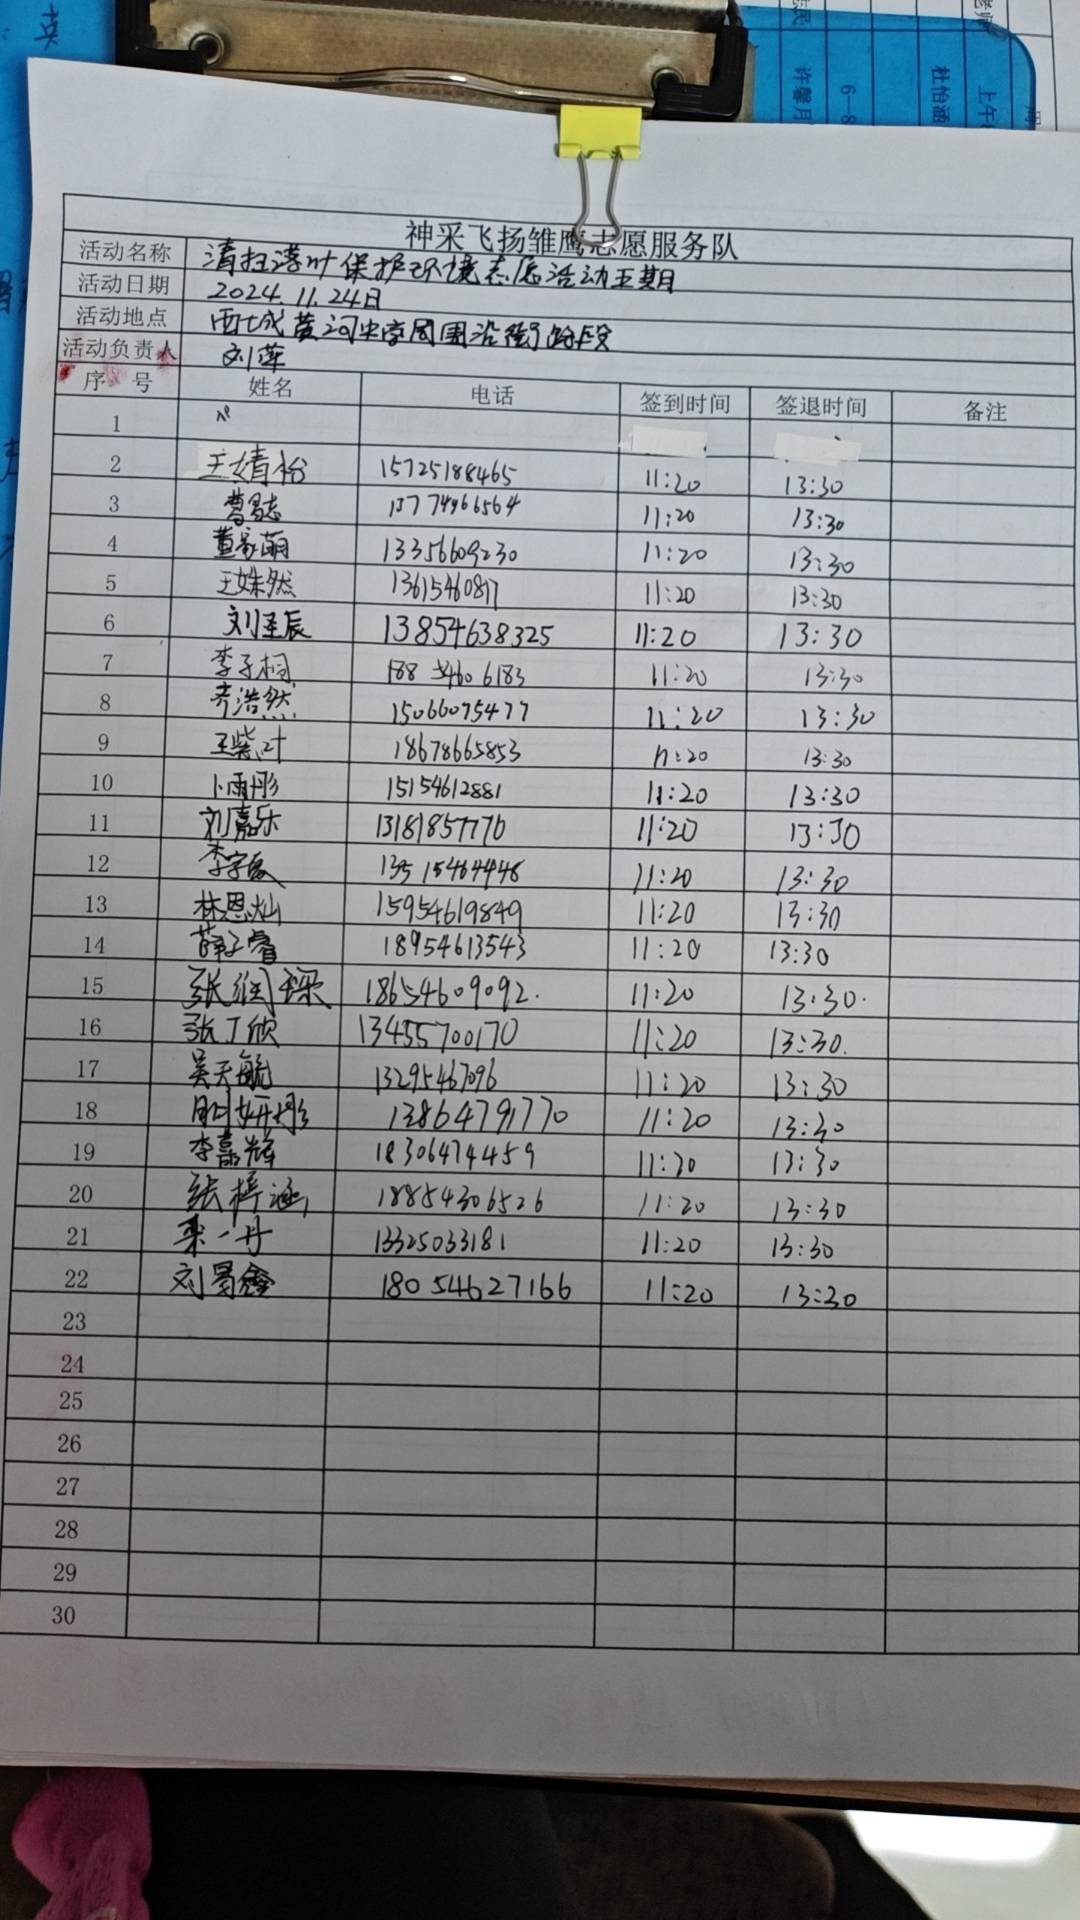 神采飞扬雏鹰志愿服务队
活动名称 清扫落叶保护环境志愿活动五期
活动日期 2024.11.24日
活动地点 西城黄河中学周围沿街路段
活动负责人 刘萍
序号 姓名 电话 签到时间 签退时间 备注
1
2 王婧怡 15725188465 11:20 13:30
3 13774966564 11:20 13:30
4 董家萌 13356609230 11:20 13:30
5 王姝然 13615460817 11:20 13:30
6 刘圣辰 13854638325 11:20 13:30
7 李子桐 188 5460 6183 11:20 13:30
8 齐浩然 15066075477 11:20 13:30
9 王紫叶 18678665853 11:20 13:30
10 卜雨彤 15154612881 11:20 13:30
11 刘嘉乐 13181857770 11:20 13:30
12 11:20 13:30
13 林恩灿 15954619849 11:20 13:30
14 薛子睿 18954613543 11:20 13:30
15 张润琛 18654609092. 11:20 13:30.
16 张丁欣 13455700170 11:20 13:30.
17 吴天毓 13295467096 11:20 13:30
18 13864791770 11:20 13:30
19 李嘉辉 18306474459 11:20 13:30
20 张梓涵 18854306526 11:20 13:30
21 栾一丹 13325033181 11:20 13:30
22 180 54627166 11:20 13:30
23
24
25
26
27
28
29
30